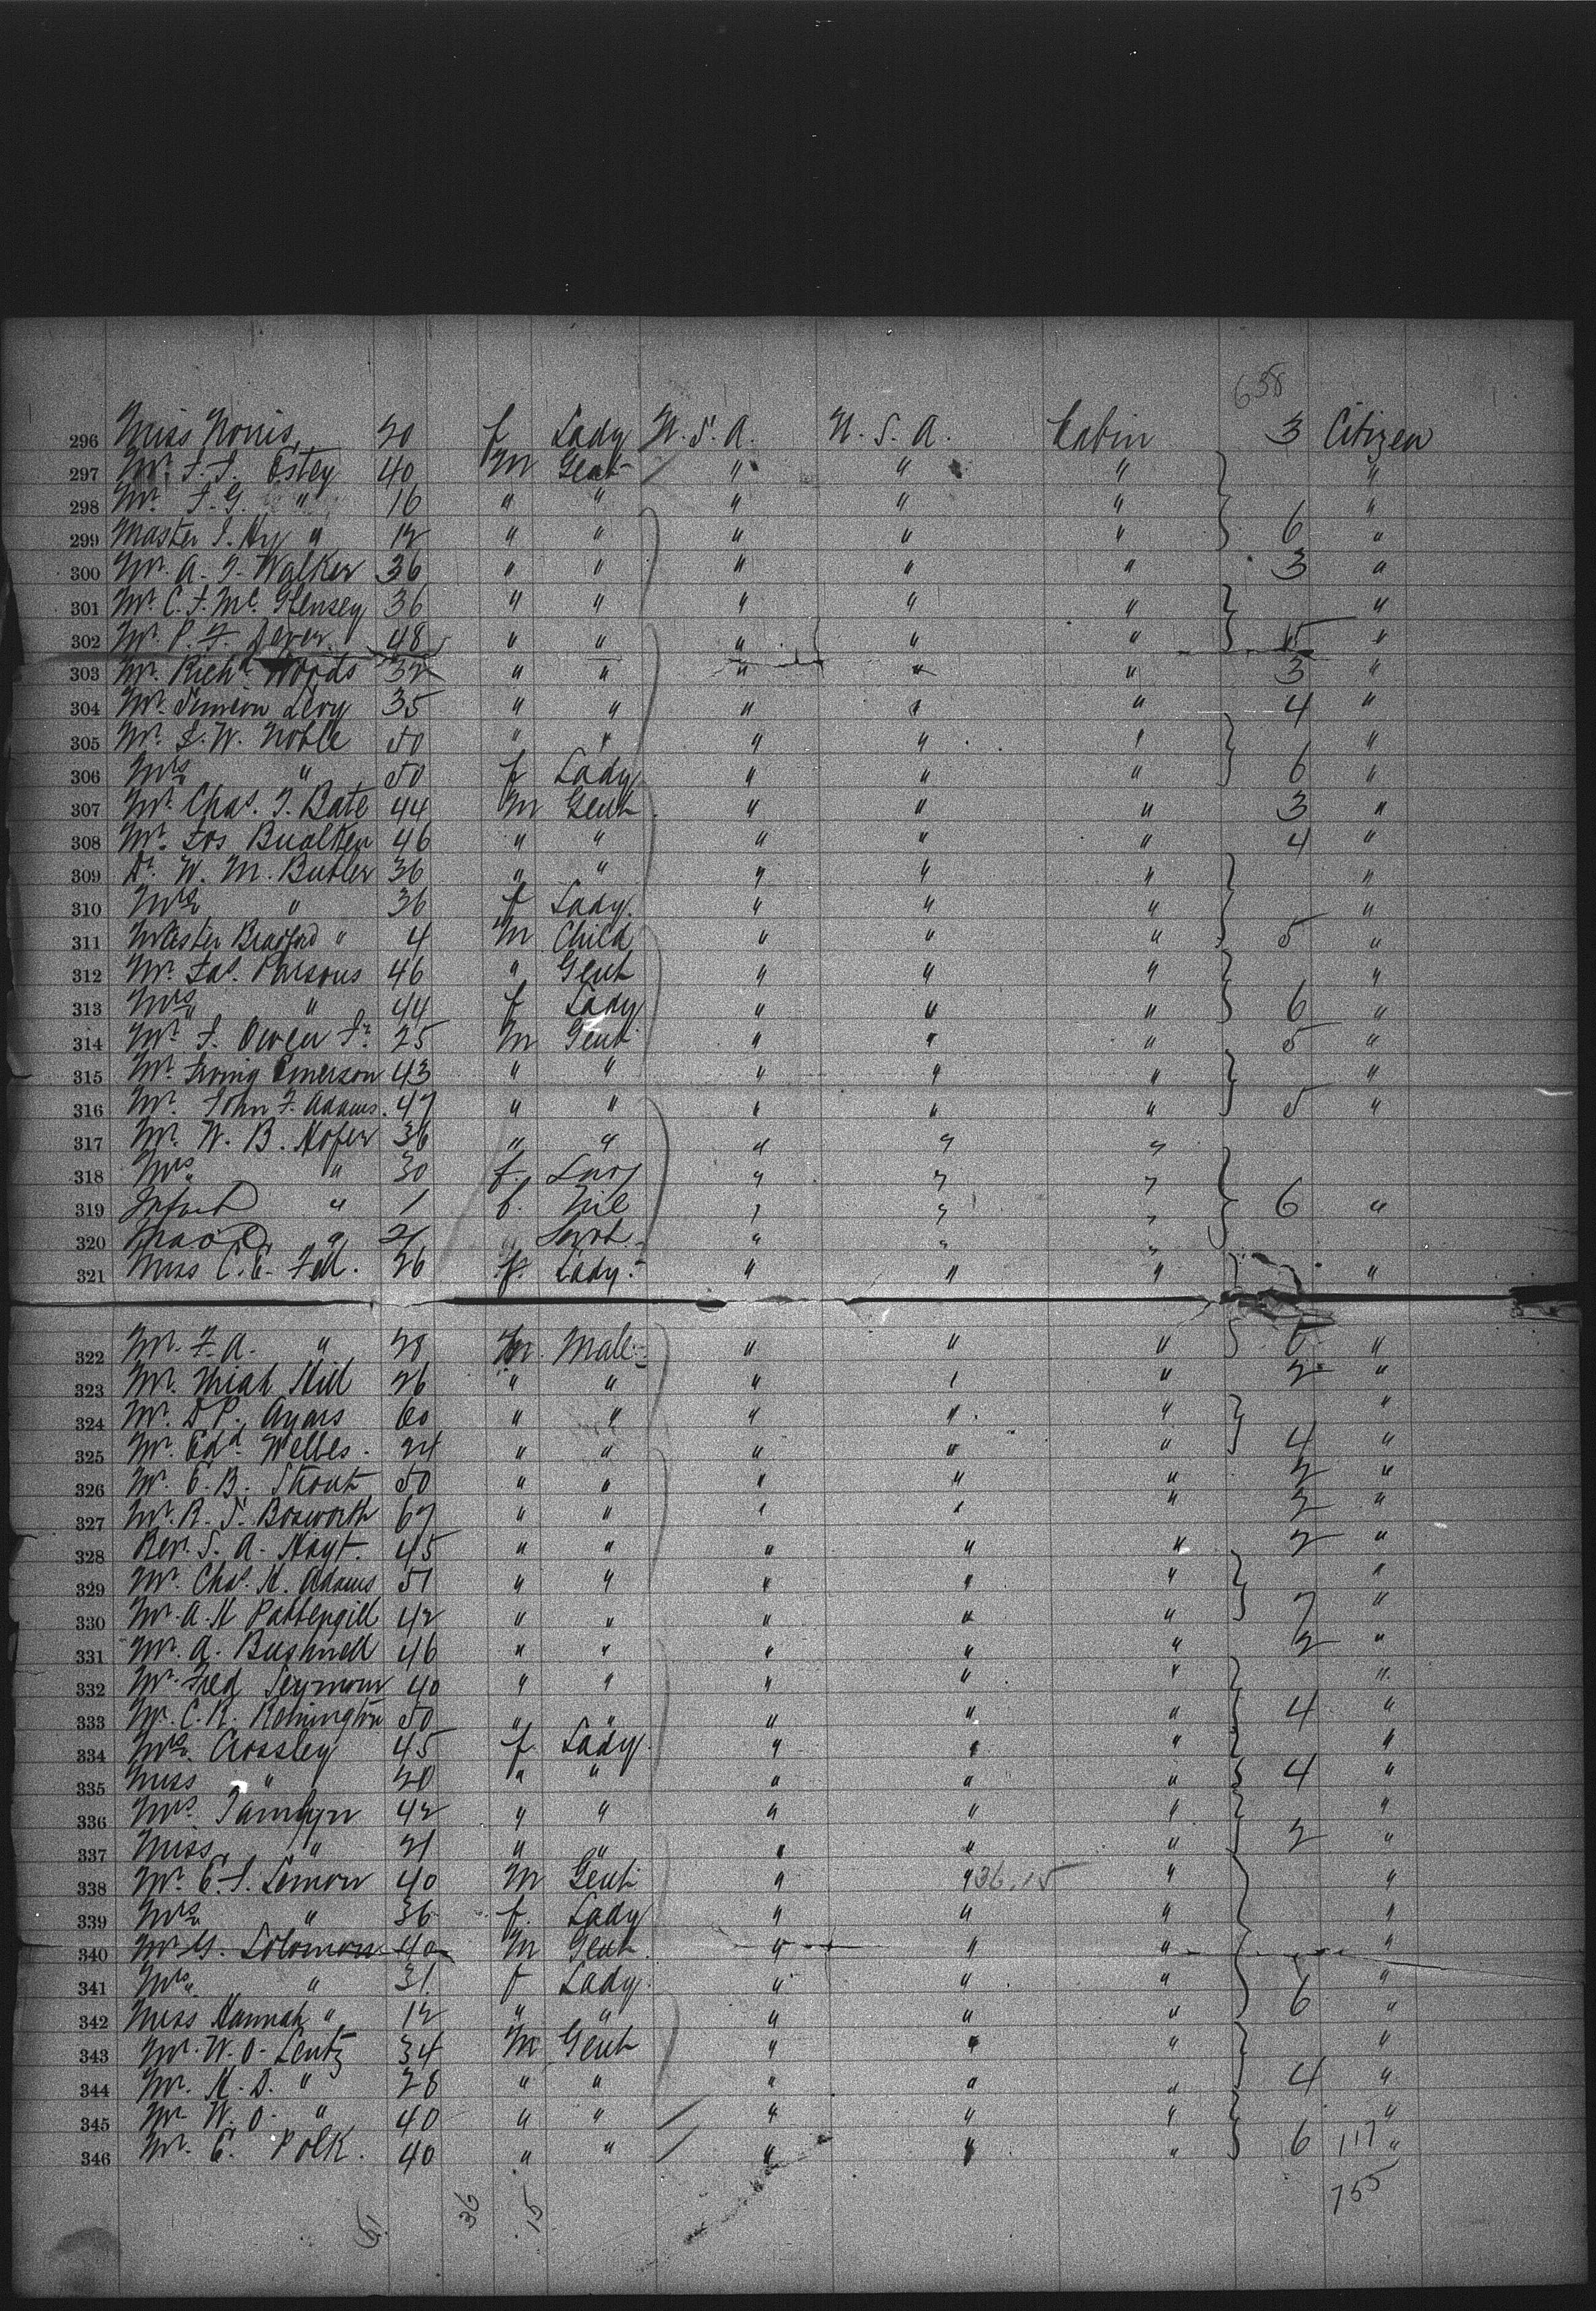 638
296 Miss Norris, 20 f Lady U.S.A. U.S.A. Cabin 3 Citizen
297 Mr. J. J. Estey 40 M Gent " " " "
298 Mr. J. G. " 16 " " " " " "
299 Master J. Hy " 12 " " " " " 6 "
300 Mr. A. J. Walker 36 " " " " " 3 "
301 Mr. C. F. Mc. 36 " " " " " "
302 Mr. P. F. 48 " " " " " "
303 Mr. Richd. Woods 32 " " " " " 3 "
304 Mr. Simeon Levy 35 " " " " " 4 "
305 Mr. J. W. Noble 50 " " " " " "
306 Mrs. " 50 f Lady " " " 6 "
307 Mr. Chas. T. Bate 44 M Gent " " " 3 "
308 Mr. Jos 46 " " " " " 4 "
309 Dr. W. M. Butler 36 " " " " " "
310 Mrs. " 36 f Lady. " " " "
311 Master Bradford " 4 M Child " " " 5 "
312 Mr. Jas. Parsons 46 " Gent " " " "
313 Mrs. " 44 f Lady " " " 6 "
314 Mr. J. Owen Jr. 25 M Gent " " " 5 "
315 Mr. Irving Emerson 43 " " " " " "
316 Mr. John F. Adams. 47 " " " " " 5 "
317 Mr. W. B. Hofer 36 " " " " "
318 Mrs. " 30 f. Lady " " "
319 Infant " 1 f. Nil " " " 6 "
320 Maid " 21 " Servt. " " "
321 Miss C. E. Fell. 26 f. Lady. " " " "
322 Mr. F. A. " 28 M. Male " " " 6 "
323 Mr. Hill 26 " " " " " 2 "
324 Mr. D. P. Ayars 60 " " " " " "
325 Mr. Edd. Welles. 24 " " " " " 4 "
326 Mr. E. B. Stout 50 " " " " " 2 "
327 Mr. R. S. Bosworth 67 " " " " " 2 "
328 Rev. S. A. Hoyt. 45 " " " " " 2 "
329 Mr. Chas. K. Adams 51 " " " " " "
330 Mr. A. H Pattengill 42 " " " " " 7 "
331 Mr. A. Bushnell 46 " " " " " 2 "
332 Mr. Fred Seymour 40 " " " " " "
333 Mr. C. R. Remington 50 " " " " " 4 "
334 Mrs. Crossley 45 f. Lady. " " " "
335 Miss " 20 " " " " " 4 "
336 Mrs. Tamlyn 42 " " " " " "
337 Miss " 21 " " " " " 2 "
338 Mr. E. J. Lemon 40 M Gent " " 36.15 " "
339 Mrs. " 36 f. Lady " " " "
340 Mr. G. Solomon 40 M Gent. " " " "
341 Mrs. " 31. f Lady. " " " "
342 Miss Hannah " 12 " " " " " 6 "
343 Mr. W. O. Lentz 34 M Gent " " " "
344 Mr. H. D. " 28 " " " " " 4 "
345 Mr. W. O. " 40 " " " " " "
346 Mr. E. Polk. 40 " " " " " 6 117 "
51. 36 15 755